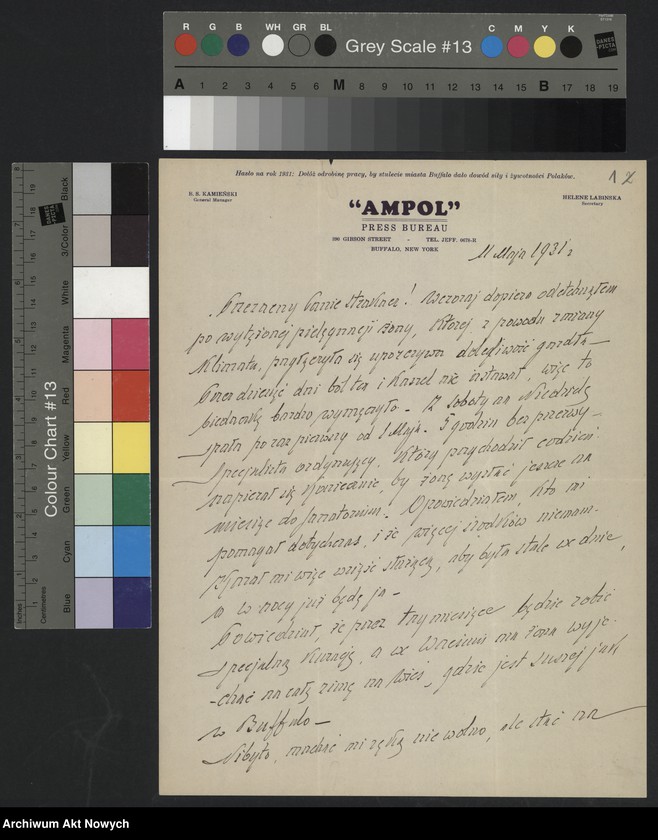 R G B WH GR BL Grey Scale #13 C M Y K
A 1 2 3 4 5 6 M 8 9 10 11 12 13 14 15 B 17 18 19
Colour Chart #13
Blue Cyan Green Yellow Red Magenta White 3/Color Black
Inches
Centimetres
Hasło na rok 1931: Dołóż odrobinę pracy, by stulecie miasta Buffalo dało dowód siły i żywotności Polaków.
12
S. S. KAMIEŃSKI
General Manager
HELENE LABINSKA
Secretary
"AMPOL"
PRESS BUREAU
390 GIBSON STREET - TEL. JEFF.
BUFFALO, NEW YORK
11 Maja 1931 r
Poczciwy Panie ! Wczoraj dopiero odetchnąłem
po wytężonej pielęgnacji żony, której z powodu zmiany
klimatu, się uporczywa dolegliwość gardła -
dni ból ten i kaszel nie ustawał, więc to
biedaczkę bardzo wymęczyło - Z soboty na Niedzielę
spała po raz pierwszy od 1 Maja - 5 godzin bez przerwy -
Specjalista ordynujący, który przychodził codzień
napierał się koniecznie, by żonę wysłać jeszcze na
miesiąc do sanatorium. Opowiedziałem, kto mi
pomagał dotychczas, i że więcej środków niemam -
Kazał mi więc wziąść służącą, aby była stale we dnie,
a w nocy już będę ja -
Powiedział, że przez trzy miesiące będzie robić
specjalną kurację, a we Wrześniu ma żona wyje-
-chać na całą zimę na wieś, gdzie jest suszej jak
w Buffalo -
Niby to, machać mi ręką nie wolno, ale stać na
Archiwum Akt Nowych